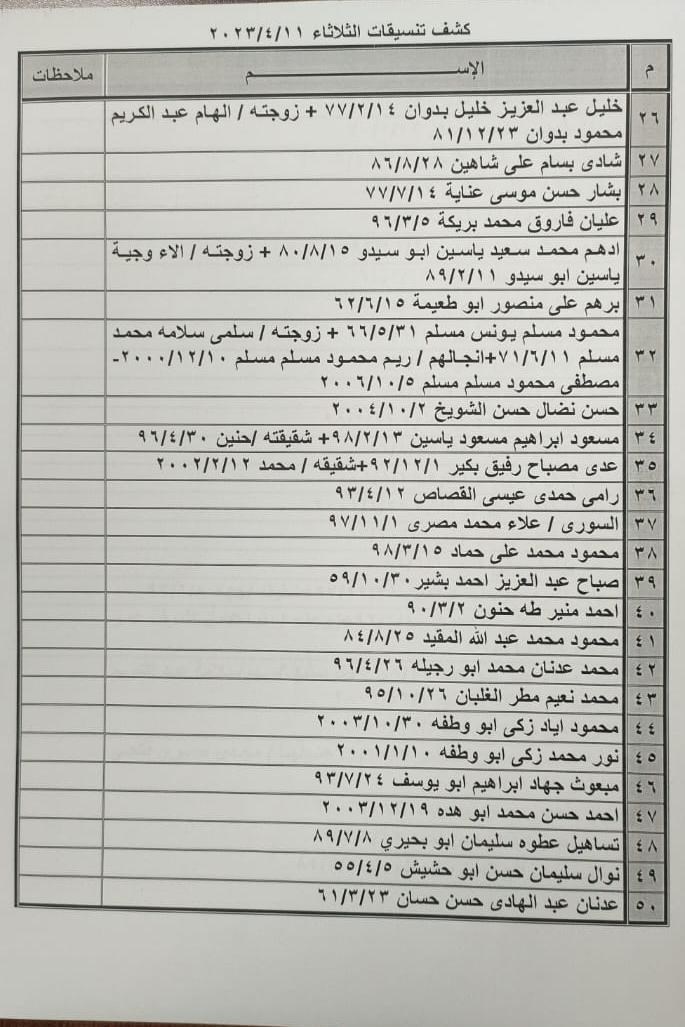 كشف تنسيقات الثلاثاء ٢٠٢٣/٤/١١
م الإســـــــــم ملاحظات
٢٦ خليل عبد العزيز خليل بدوان ٧٧/٢/١٤ + زوجته / الهام عبد الكريم
محمود بدوان ٨١/١٢/٢٣
٢٧ شادى بسام على شاهين ٨٦/٨/٢٨
٢٨ بشار حسن موسى عناية ٧٧/٧/١٤
٢٩ عليان فاروق محمد بريكة ٩٦/٣/٥
٣٠ ادهم محمد سعيد ياسين ابو سيدو ٨٠/٨/١٥ + زوجته / الاء وجية
ياسين ابو سيدو ٨٩/٢/١١
٣١ برهم على منصور ابو طعيمة ٦٢/٦/١٥
٣٢ محمود مسلم يونس مسلم ٦٦/٥/٣١ + زوجته / سلمى سلامه محمد
مسلم ٧١/٦/١١+انجالهم / ريم محمود مسلم مسلم ٢٠٠٠/١٢/١٠-
مصطفى محمود مسلم مسلم ٢٠٠٦/١٠/٥
٣٣ حسن نضال حسن الشويخ ٢٠٠٤/١٠/٢
٣٤ مسعود ابراهيم مسعود ياسين ٩٨/٢/١٣+ شقيقته /حنين ٩٦/٤/٣٠
٣٥ عدى مصباح رفيق بكير ٩٢/١٢/١+شقيقه / محمد ٢٠٠٢/٢/١٢
٣٦ رامى حمدى عيسى القصاص ٩٣/٤/١٢
٣٧ السورى / علاء محمد مصرى ٩٧/١١/١
٣٨ محمود محمد على حماد ٩٨/٣/١٥
٣٩ صباح عبد العزيز احمد بشير ٥٩/١٠/٣٠
٤٠ احمد منير طه حنون ٩٠/٣/٢
٤١ محمود محمد عبد الله المقيد ٨٤/٨/٢٥
٤٢ محمد عدنان محمد ابو رجيله ٩٦/٤/٢٦
٤٣ محمد نعيم مطر الغلبان ٩٥/١٠/٢٦
٤٤ محمود اياد زكى ابو وطفه ٢٠٠٣/١٠/٣٠
٤٥ نور محمد زكى ابو وطفه ٢٠٠١/١/١٠
٤٦ مبعوث جهاد ابراهيم ابو يوسف ٩٣/٧/٢٤
٤٧ احمد حسن محمد ابو هده ٢٠٠٣/١٢/١٩
٤٨ تساهيل عطوه سليمان ابو بحيري ٨٩/٧/٨
٤٩ نوال سليمان حسن ابو حشيش ٥٥/٤/٥
٥٠ عدنان عبد الهادى حسن حسان ٦١/٣/٢٣